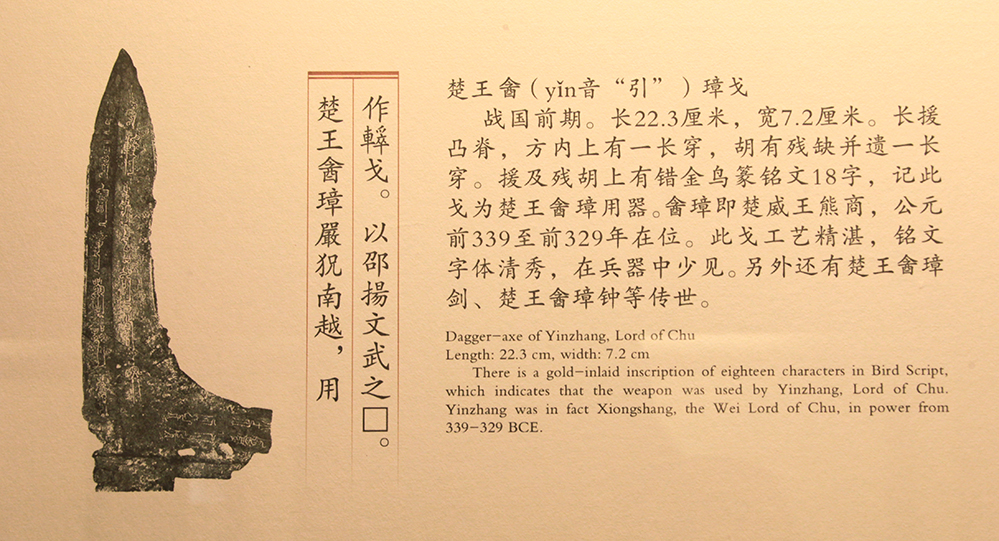 楚王酓璋嚴南越，用
作戈。以邵揚文武之□。
楚王酓（yǐn音“引”）璋戈
战国前期。长22.3厘米，宽7.2厘米。长援
凸脊，方内上有一长穿，胡有残缺并遗一长
穿。援及残胡上有错金鸟篆铭文18字，记此
戈为楚王酓璋用器。酓璋即楚威王熊商，公元
前339至前329年在位。此戈工艺精湛，铭文
字体清秀，在兵器中少见。另外还有楚王酓璋
剑、楚王酓璋钟等传世。
Dagger-axe of Yinzhang, Lord of Chu
Length: 22.3 cm, width: 7.2 cm
There is a gold-inlaid inscription of eighteen characters in Bird Script,
which indicates that the weapon was used by Yinzhang, Lord of Chu.
Yinzhang was in fact Xiongshang, the Wei Lord of Chu, in power from
339-329 BCE.